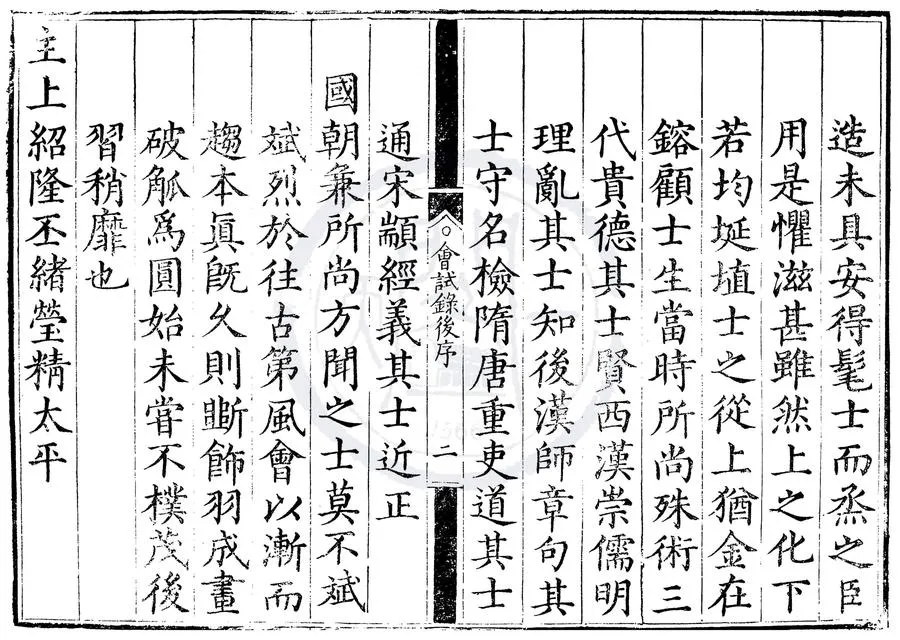 造未具安得髦士而烝之臣
用是懼滋甚雖然上之化下
若均埏埴士之從上猶金在
鎔顧士生當時所尚殊術三
代貴德其士賢西漢崇儒明
理亂其士知後漢師章句其
士守名檢隋唐重吏道其士
會試錄後序
二
通宋顓經義其士近正
國朝兼所尚方聞之士莫不斌
斌烈於往古第風會以漸而
趨本眞旣久則斲飾羽成畫
破觚爲圓始未甞不樸茂後
習稍靡也
主上紹隆丕緒瑩精太平